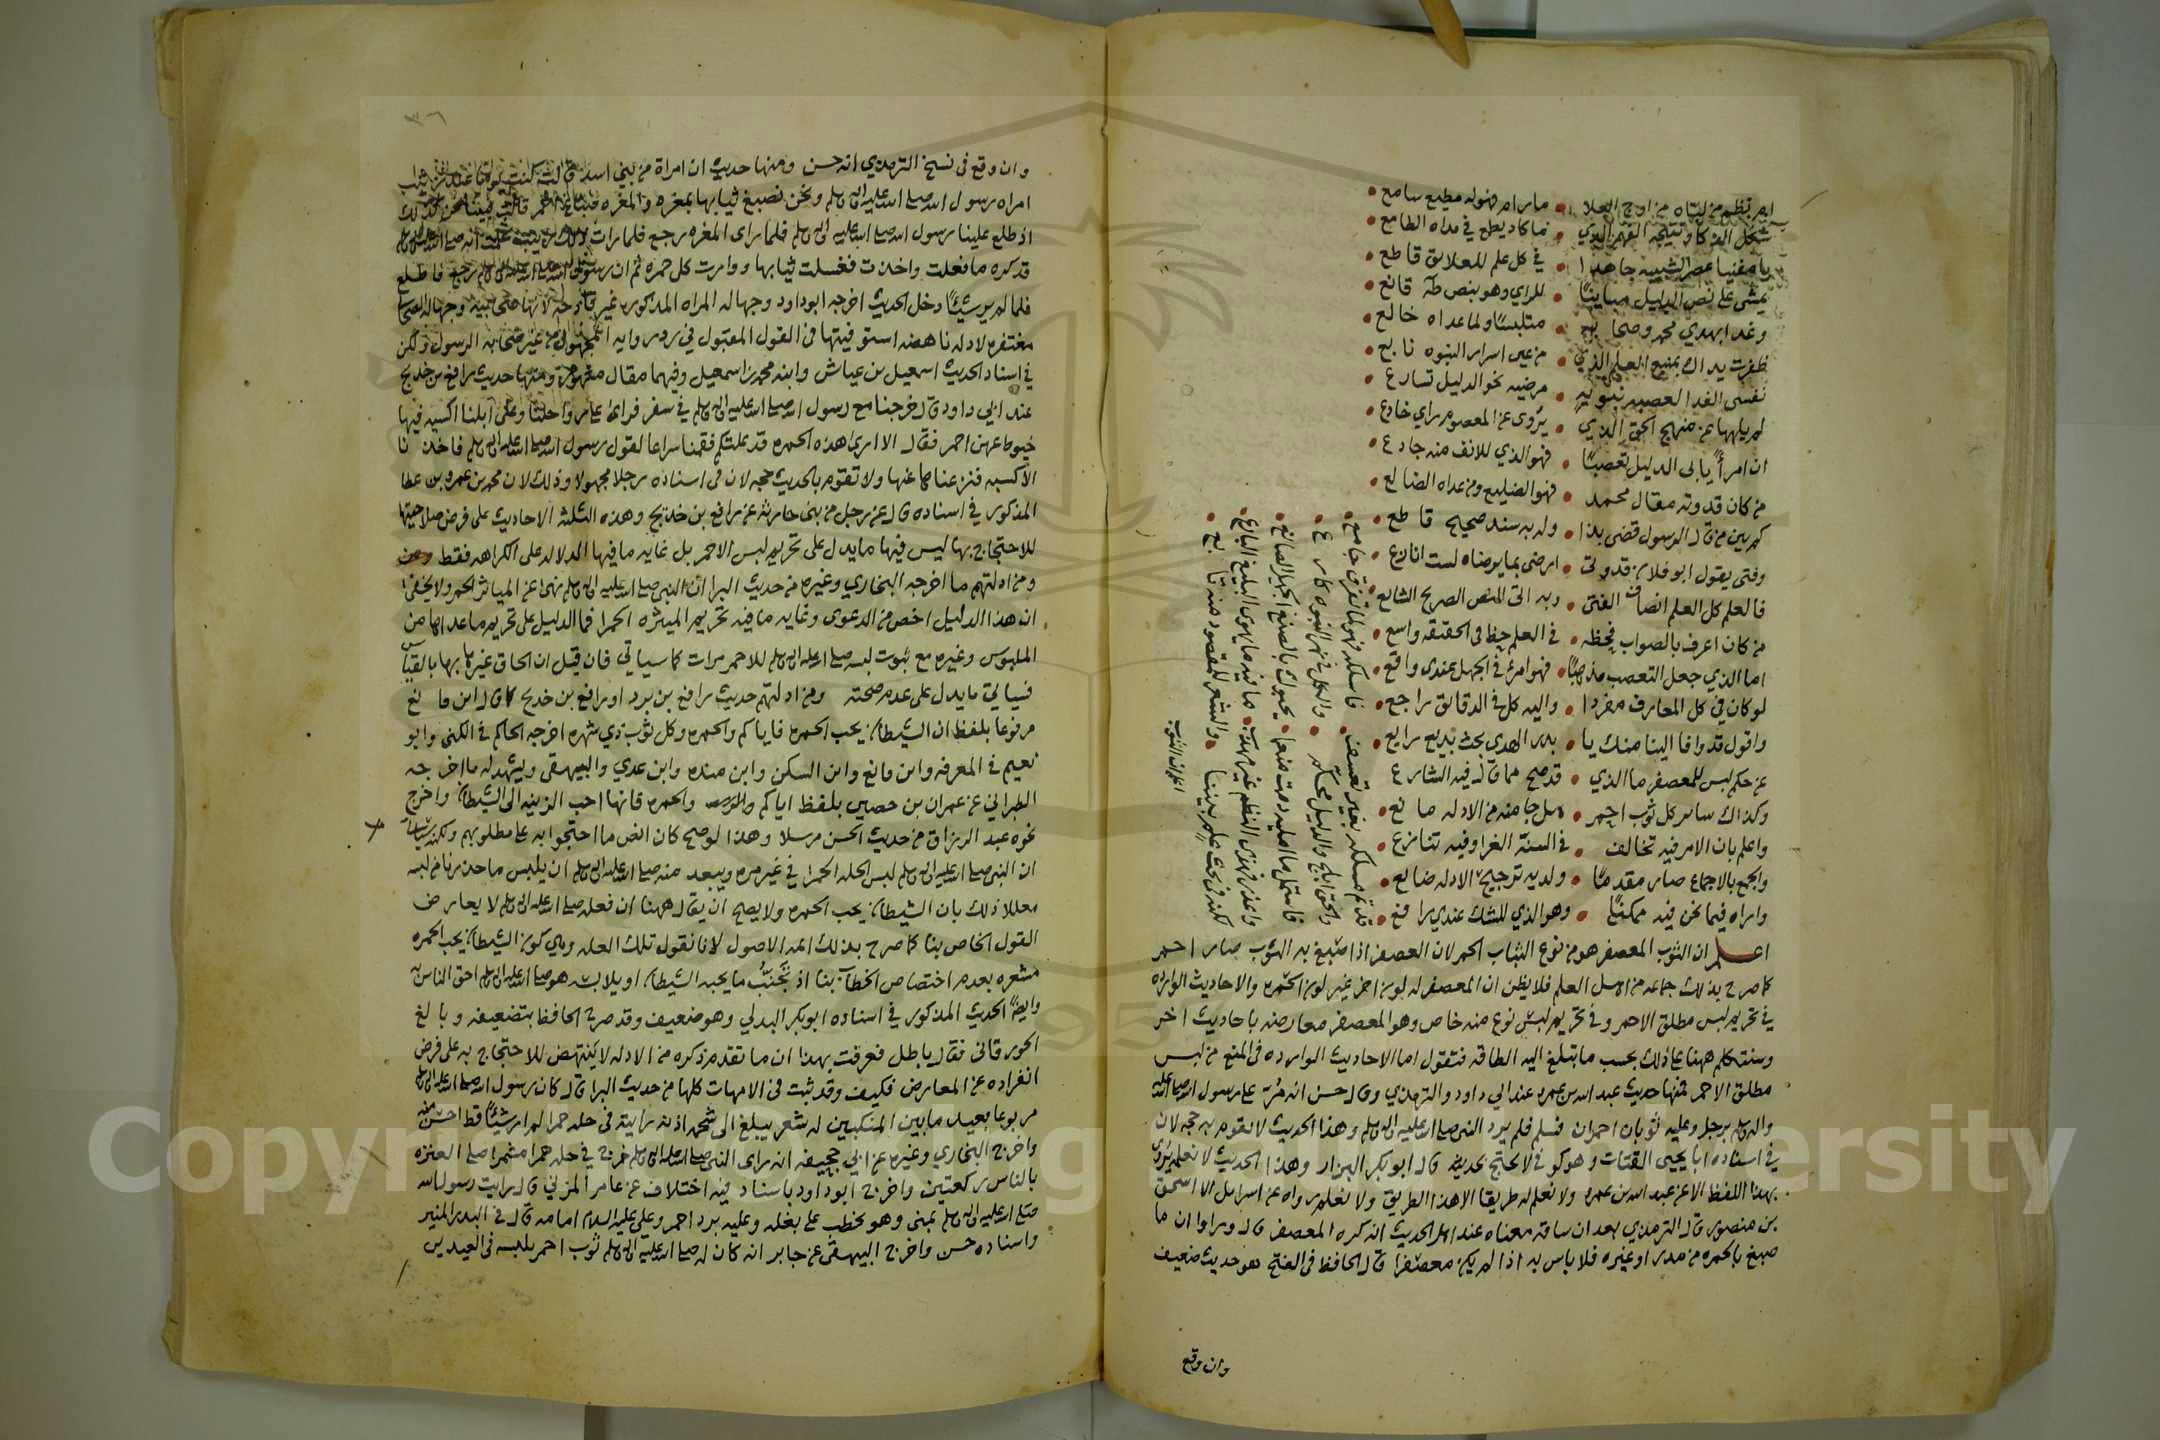 ما رامه فهوله مطيع سامع
ما كاد يطمع في مداه الطامع
يا مفنيا عصر الشبيبه جاهدا • في كل علم للعلايق قاطع
يمشي على نص الدليل مباينًا • للراي وهو بنص طه قانع
وغدا بهدي محمد وصحابه • متلبسًا ولما عداه خالع
ظفرت يداك بمنبع العلم الذي • من عين اسرار النبوه نابع
نفسي الفدا لعصبه نبويه • مرضيه نحو الدليل تسارع
لم يلهها عن منهج الحق الذي • يروى عن المعصوم راي خادع
ان امرأً يابى الدليل تعصبًا • فهو الذي للانف منه جادع
من كان قدوته مقال محمد • فهو الضليع ومن عداه الضالع
كم بين من قال الرسول قضى بذا • وله به سند صحيح قاطع
وفتى يقول ابو فلان قدوتي • ارضى بما يرضاه لست انازع
فالعلم كل العلم انصاف الفتى • وبه اتى النص الصريح الشايع
من كان اعرف بالصواب فحظه • في العلم حظ في الحقيقه واسع
اما الذي جعل التعصب مذهبًا • فهو امرئ في الجهل عندي واقع
لو كان في كل المعارف مفردا • واليه كل في الدقائق راجع
واقول قد وافا الينا منك يا • بدر الهدي بحث بديع رايع
عن حكم لبس للمعصفر ما الذي • قد صح مما قال فيه الشارع
وكذاك ساير كل ثوب احمر • هل جا منه من الادله مانع
واعلم بان الامر فيه تخالف • في السنة الغرا وفيه تنازع
والجمع بالاجماع صار مقدمًا • ولديه ترجيح الادله ضايع
واراه فيما نحن فيه ممكنًا • وهو الذي للشك عندي رافع
قدتم مسلكه بغير تعسف • فاسلكه فهو لما تفرق جامع
والحق ابلج والدليل محكم • والكل في نهر النبوه كارع
فاستمل ما امليه دمت منعما • يحبوك بالصنع الجميل الصانع
واعذر فهذا النظم غير مهذب • ما فيه ما يهوى البليغ البارع
لكنه في بحث علم بيننا • والشعر للمقصود منه تابع
اعلم ان الثوب
اعلم ان الثوب المعصفر هو من نوع الثياب الحمر لان العصفر اذا صبغ به الثوب صار احمر
كما صرح بذلك جماعه من اهل العلم فلا يظن ان المعصفر له لون اخر غير لون الحمره والاحاديث الوارده
في تحريم لبس مطلق الاحمر وفي تحريم لبس نوع منه خاص وهو المعصفر معارضه باحاديث اخر
وسنتكلم ههنا على ذلك بحسب ما تبلغ اليه الطاقه فنقول اما الاحاديث الوارده في المنع من لبس
مطلق الاحمر فمنها حديث عبد الله بن عمرو عند ابي داود والترمذي وقال حسن انه مر على رسول الله صلى الله عليه
واله وسلم رجل وعليه ثوبان احمران فسلم فلم يرد النبي صلى الله عليه واله وسلم وهذا الحديث لا تقوم به حجه لان
في اسناده ابا يحيى القتات وهو كوفي لا يحتج بحديثه قال ابو بكر البزار وهذا الحديث لا نعلمه يروى
بهذا اللفظ الا عن عبد الله بن عمرو ولا نعلم له طريقا الا هذا الطريق ولا نعلم رواه عن اسرايل الا اسحق
بن منصور قال الترمذي بعد ان ساقه معناه عند اهل الحديث انه كره المعصفر قال وراوا ان ما
صبغ بالحمره من مدر او غيره فلا باس به اذا لم يكن معصفرا قال الحافظ في الفتح هو حديث ضعيف
وان وقع
٣٦
وان وقع في نسخ الترمذي انه حسن ومنها حديث ان امراة من بني اسد قالت كنت يوما عند زينب
امراه رسول الله صلى الله عليه واله وسلم ونحن نصبغ ثيابها بمغره والمغره صباغ احمر قالت فبينا نحن كذلك
اذ طلع علينا رسول الله صلى الله عليه واله وسلم فلما راى المغره رجع فلما رات ذلك زينب علمت انه صلى الله عليه واله وسلم
قد كره ما فعلت واخذت فغسلت ثيابها ووارت كل حمره ثم ان رسول الله صلى الله عليه واله وسلم رجع فاطلع
فلما لم ير شيئًا دخل الحديث اخرجه ابو داود وجهاله المراه المذكوره غير قادحه لانها صحابيه وجهالة الصحابي
مغتفره لادله ناهضه استوفيتها في القول المقبول في رد روايه المجهول من غير صحابه الرسول ولكن
في اسناد الحديث اسمعيل بن عياش وابنه محمد بن اسمعيل وفيهما مقال مشهور ومنها حديث رافع بن خديج
عند ابي داود قال خرجنا مع رسول الله صلى الله عليه واله وسلم في سفر فراى على رواحلنا وعلى ابلنا اكسيه فيها
خيوط عهن احمر فقال الا ارى هذه الحمره قد علتكم فقمنا سراعا لقول رسول الله صلى الله عليه واله وسلم فاخذنا
الاكسيه فنزعناها عنها ولا تقوم بالحديث حجه لان في اسناده رجلا مجهولا وذلك لان محمد بن عمرو بن عطا
المذكور في اسناده قال عن رجل من بني حارثه عن رافع بن خديج وهذه الثلثه الاحاديث على فرض صلاحيتها
للاحتجاج بها ليس فيها ما يدل على تحريم لبس الاحمر بل غايه ما فيها الدلاله على الكراهه فقط
ومن ادلتهم ما اخرجه البخاري وغيره من حديث البرا ان النبي صلى الله عليه واله وسلم نهى عن المياثر الحمر ولا يخفى
ان هذا الدليل اخص من الدعوى وغايه ما فيه تحريم الميثره الحمرا فما الدليل على تحريم ما عداها من
الملبوس وغيره مع ثبوت لبسه صلى الله عليه واله وسلم للاحمر مرات كما سياتي فان قيل ان الحاق غيرها بها بالقياس
فسياتي ما يدل على عدم صحته ومن ادلتهم حديث رافع بن برد او رافع بن خديج كما قال ابن قانع
مرفوعا بلفظ ان الشيطان يحب الحمره فاياكم والحمره وكل ثوب ذي شهره اخرجه الحاكم في الكنى وابو
نعيم في المعرفه وابن قانع وابن السكن وابن منده وابن عدي والبيهقي ويشهد له ما اخرجه
الطبراني عن عمران بن حصين بلفظ اياكم والحمره فانها احب الزينه الى الشيطان واخرج
نحوه عبد الرزاق من حديث الحسن مرسلا وهذا لو صح كان انص ما احتجوا به على مطلوبهم ولكنه سياتي
ان النبي صلى الله عليه واله وسلم لبس الحله الحمرا في غير مره ويبعد منه صلى الله عليه واله وسلم ان يلبس ما حذرنا من لبسه
معللا ذلك بان الشيطان يحب الحمره ولا يصح ان يقال ههنا ان فعله صلى الله عليه واله وسلم لا يعارض
القول الخاص بنا كما صرح بذلك ائمه الاصول لانا نقول تلك العله وهي كون الشيطان يحب الحمره
مشعره بعدم اختصاص الخطاب بنا اذ تجنب ما يحبه الشيطان او يلابسه هو صلى الله عليه واله وسلم احق الناس به
وايضًا الحديث المذكور في اسناده ابو بكر البدلي وهو ضعيف وقد صرح الحافظ بتضعيفه وبالغ
الجورقاني فقال باطل فعرفت بهذا ان ما تقدم ذكره من الادله لا ينتهض للاحتجاج به على فرض
انفراده عن المعارض فكيف وقد ثبت في الامهات كلها من حديث البرا قال كان رسول الله صلى الله عليه واله وسلم
مربوعا بعيد ما بين المنكبين له شعر يبلغ الى شحمه اذنه رايته في حله حمرا لم ار شيئًا قط احسن منه
واخرج البخاري وغيره عن ابي جحيفه انه راى النبي صلى الله عليه واله وسلم خرج في حله حمرا مشمرا صلى الى العنزه
بالناس ركعتين واخرج ابو داود باسناد فيه اختلاف عن عامر المزني قال رايت رسول الله
صلى الله عليه واله وسلم بمنى وهو يخطب على بغله وعليه برد احمر وعلي عليه السلام امامه قال في البدر المنير
واسناده حسن واخرج البيهقي عن جابر انه كان له صلى الله عليه واله وسلم ثوب احمر يلبسه في العيدين